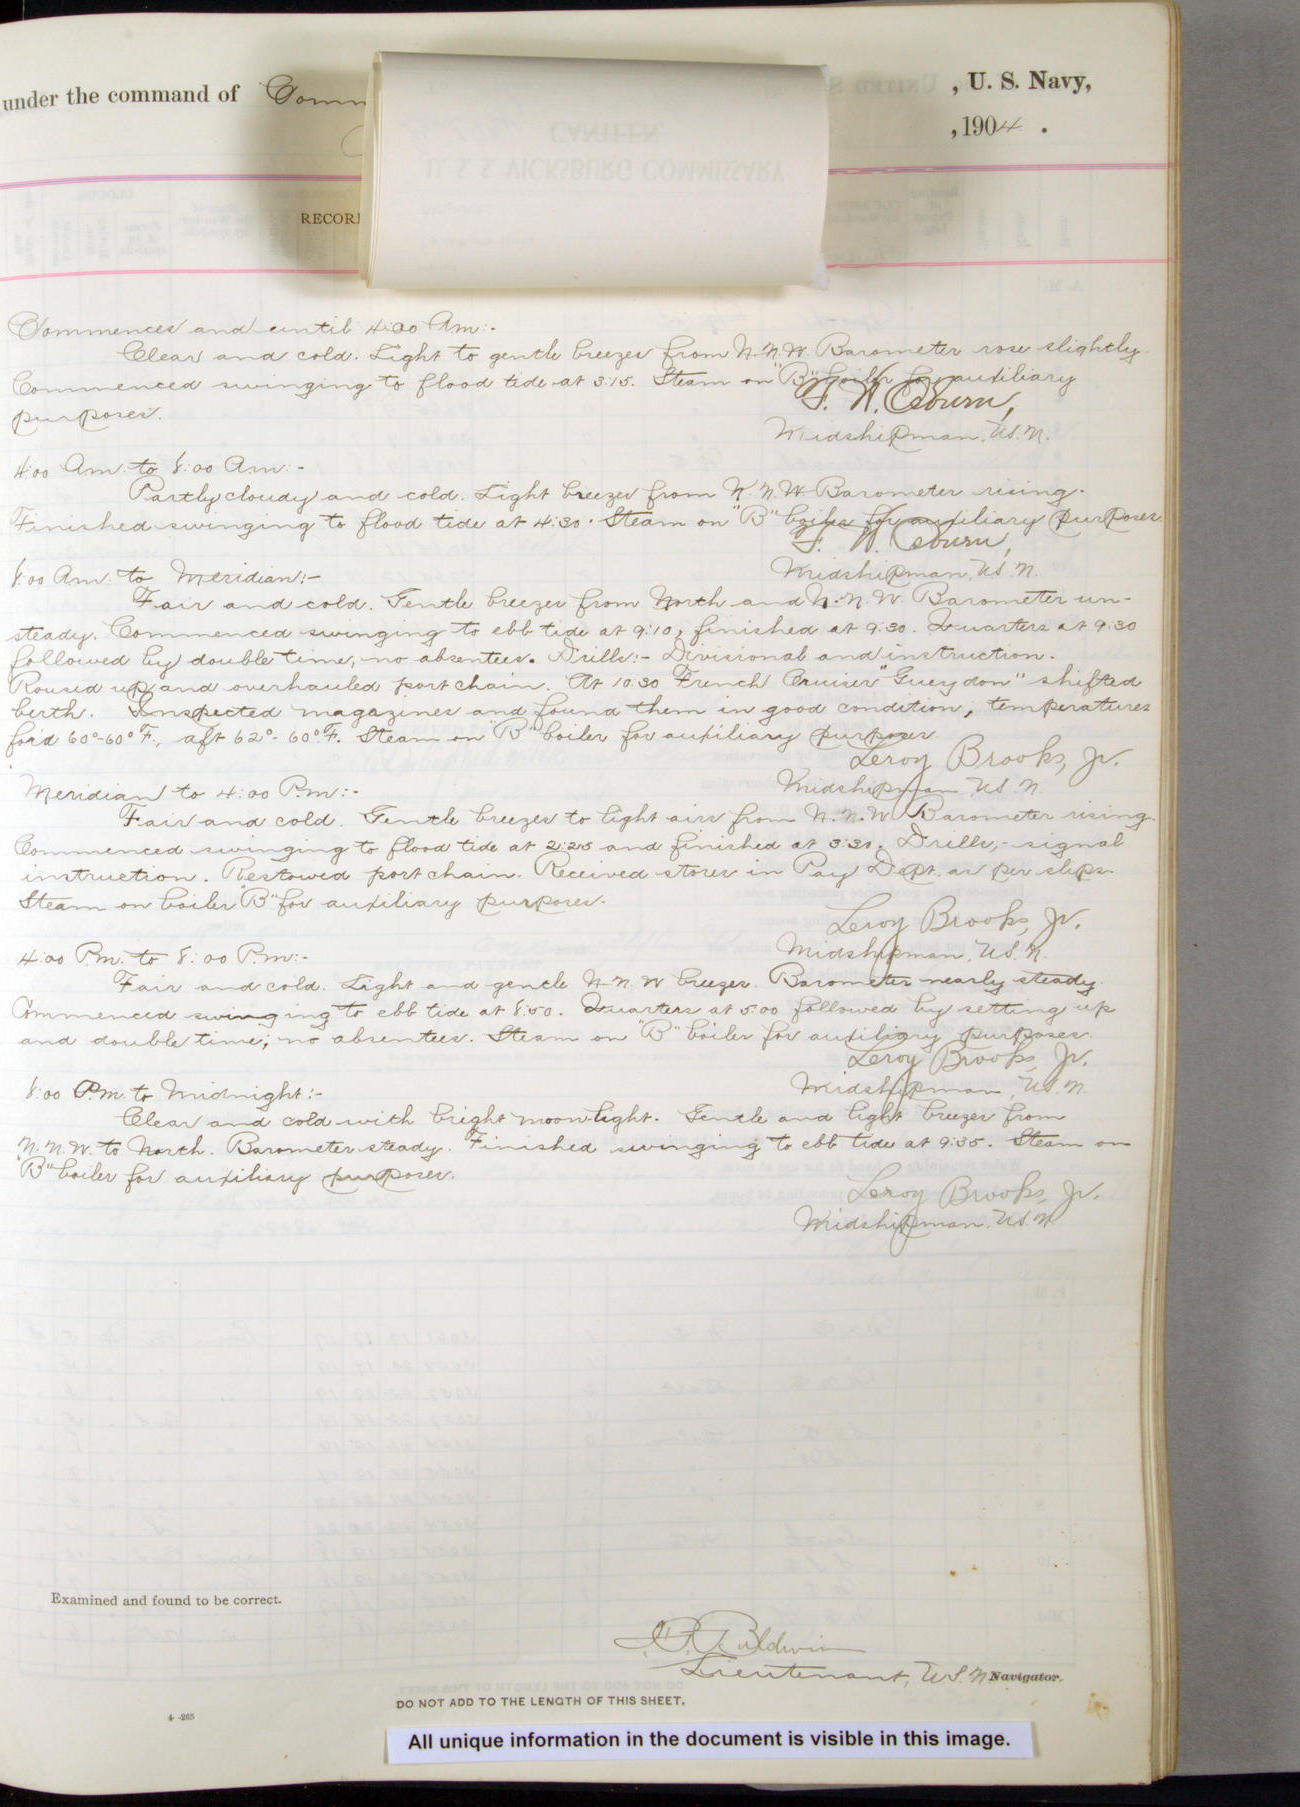 under the command of Comm , U. S. Navy,
, 1904 .
CANTEEN
U. S. S. VICKSBURG COMMISSARY
RECOR
Commences and until 4:00 Am:-
Clear and cold. Light to gentle breezes from N.N.W. Barometer rose slightly.
Commenced swinging to flood tide at 3:15. Steam on "B" boiler for auxiliary
purposes.
F. W. Osburn,
Midshipman, U.S.N.
4:00 Am. to 8:00 Am:-
Partly cloudy and cold. Light breezes from N.N.W. Barometer rising.
Finished swinging to flood tide at 4:30. Steam on "B" boiler for auxiliary purposes.
F. W. Osburn,
Midshipman, U.S.N.
8:00 Am. to Meridian:-
Fair and cold. Gentle breezes from North and N.N.W. Barometer un-
steady. Commenced swinging to ebb tide at 9:10, finished at 9:30. Quarters at 9:30
followed by double time, no absentees. Drills:- Divisional and instruction.
Roused up and overhauled port chain. At 10:30 French Cruiser "Gueydon" shifted
berth. Inspected magazines and found them in good condition, temperatures
for'd 60°-60°F., aft 62°-60°F. Steam on "B" boiler for auxiliary purposes.
Leroy Brooks, Jr.
Midshipman, U.S.N.
Meridian to 4:00 P.m:-
Fair and cold. Gentle breezes to light airs from N.N.W. Barometer rising.
Commenced swinging to flood tide at 2:25 and finished at 3:30. Drills,- signal
instruction. Restowed port chain. Received stores in Pay Dept. as per slips.
Steam on boiler "B" for auxiliary purposes.
Leroy Brooks, Jr.
Midshipman, U.S.N.
4:00 P.m. to 8:00 P.m:-
Fair and cold. Light and gentle N.N.W breezes. Barometer nearly steady.
Commenced swinging to ebb tide at 8:50. Quarters at 5:00 followed by setting up
and double time; no absentees. Steam on "B" boiler for auxiliary purposes.
Leroy Brooks, Jr.
Midshipman, U.S.N.
8:00 P.m. to Midnight:-
Clear and cold with bright moonlight. Gentle and light breezes from
N.N.W. to North. Barometer steady. Finished swinging to ebb tide at 9:35. Steam on
"B" boiler for auxiliary purposes.
Leroy Brooks, Jr.
Midshipman, U.S.N
Examined and found to be correct.
Baldwin
Lieutenant, U.S.N Navigator.
DO NOT ADD TO THE LENGTH OF THIS SHEET.
4-265
All unique information in the document is visible in this image.